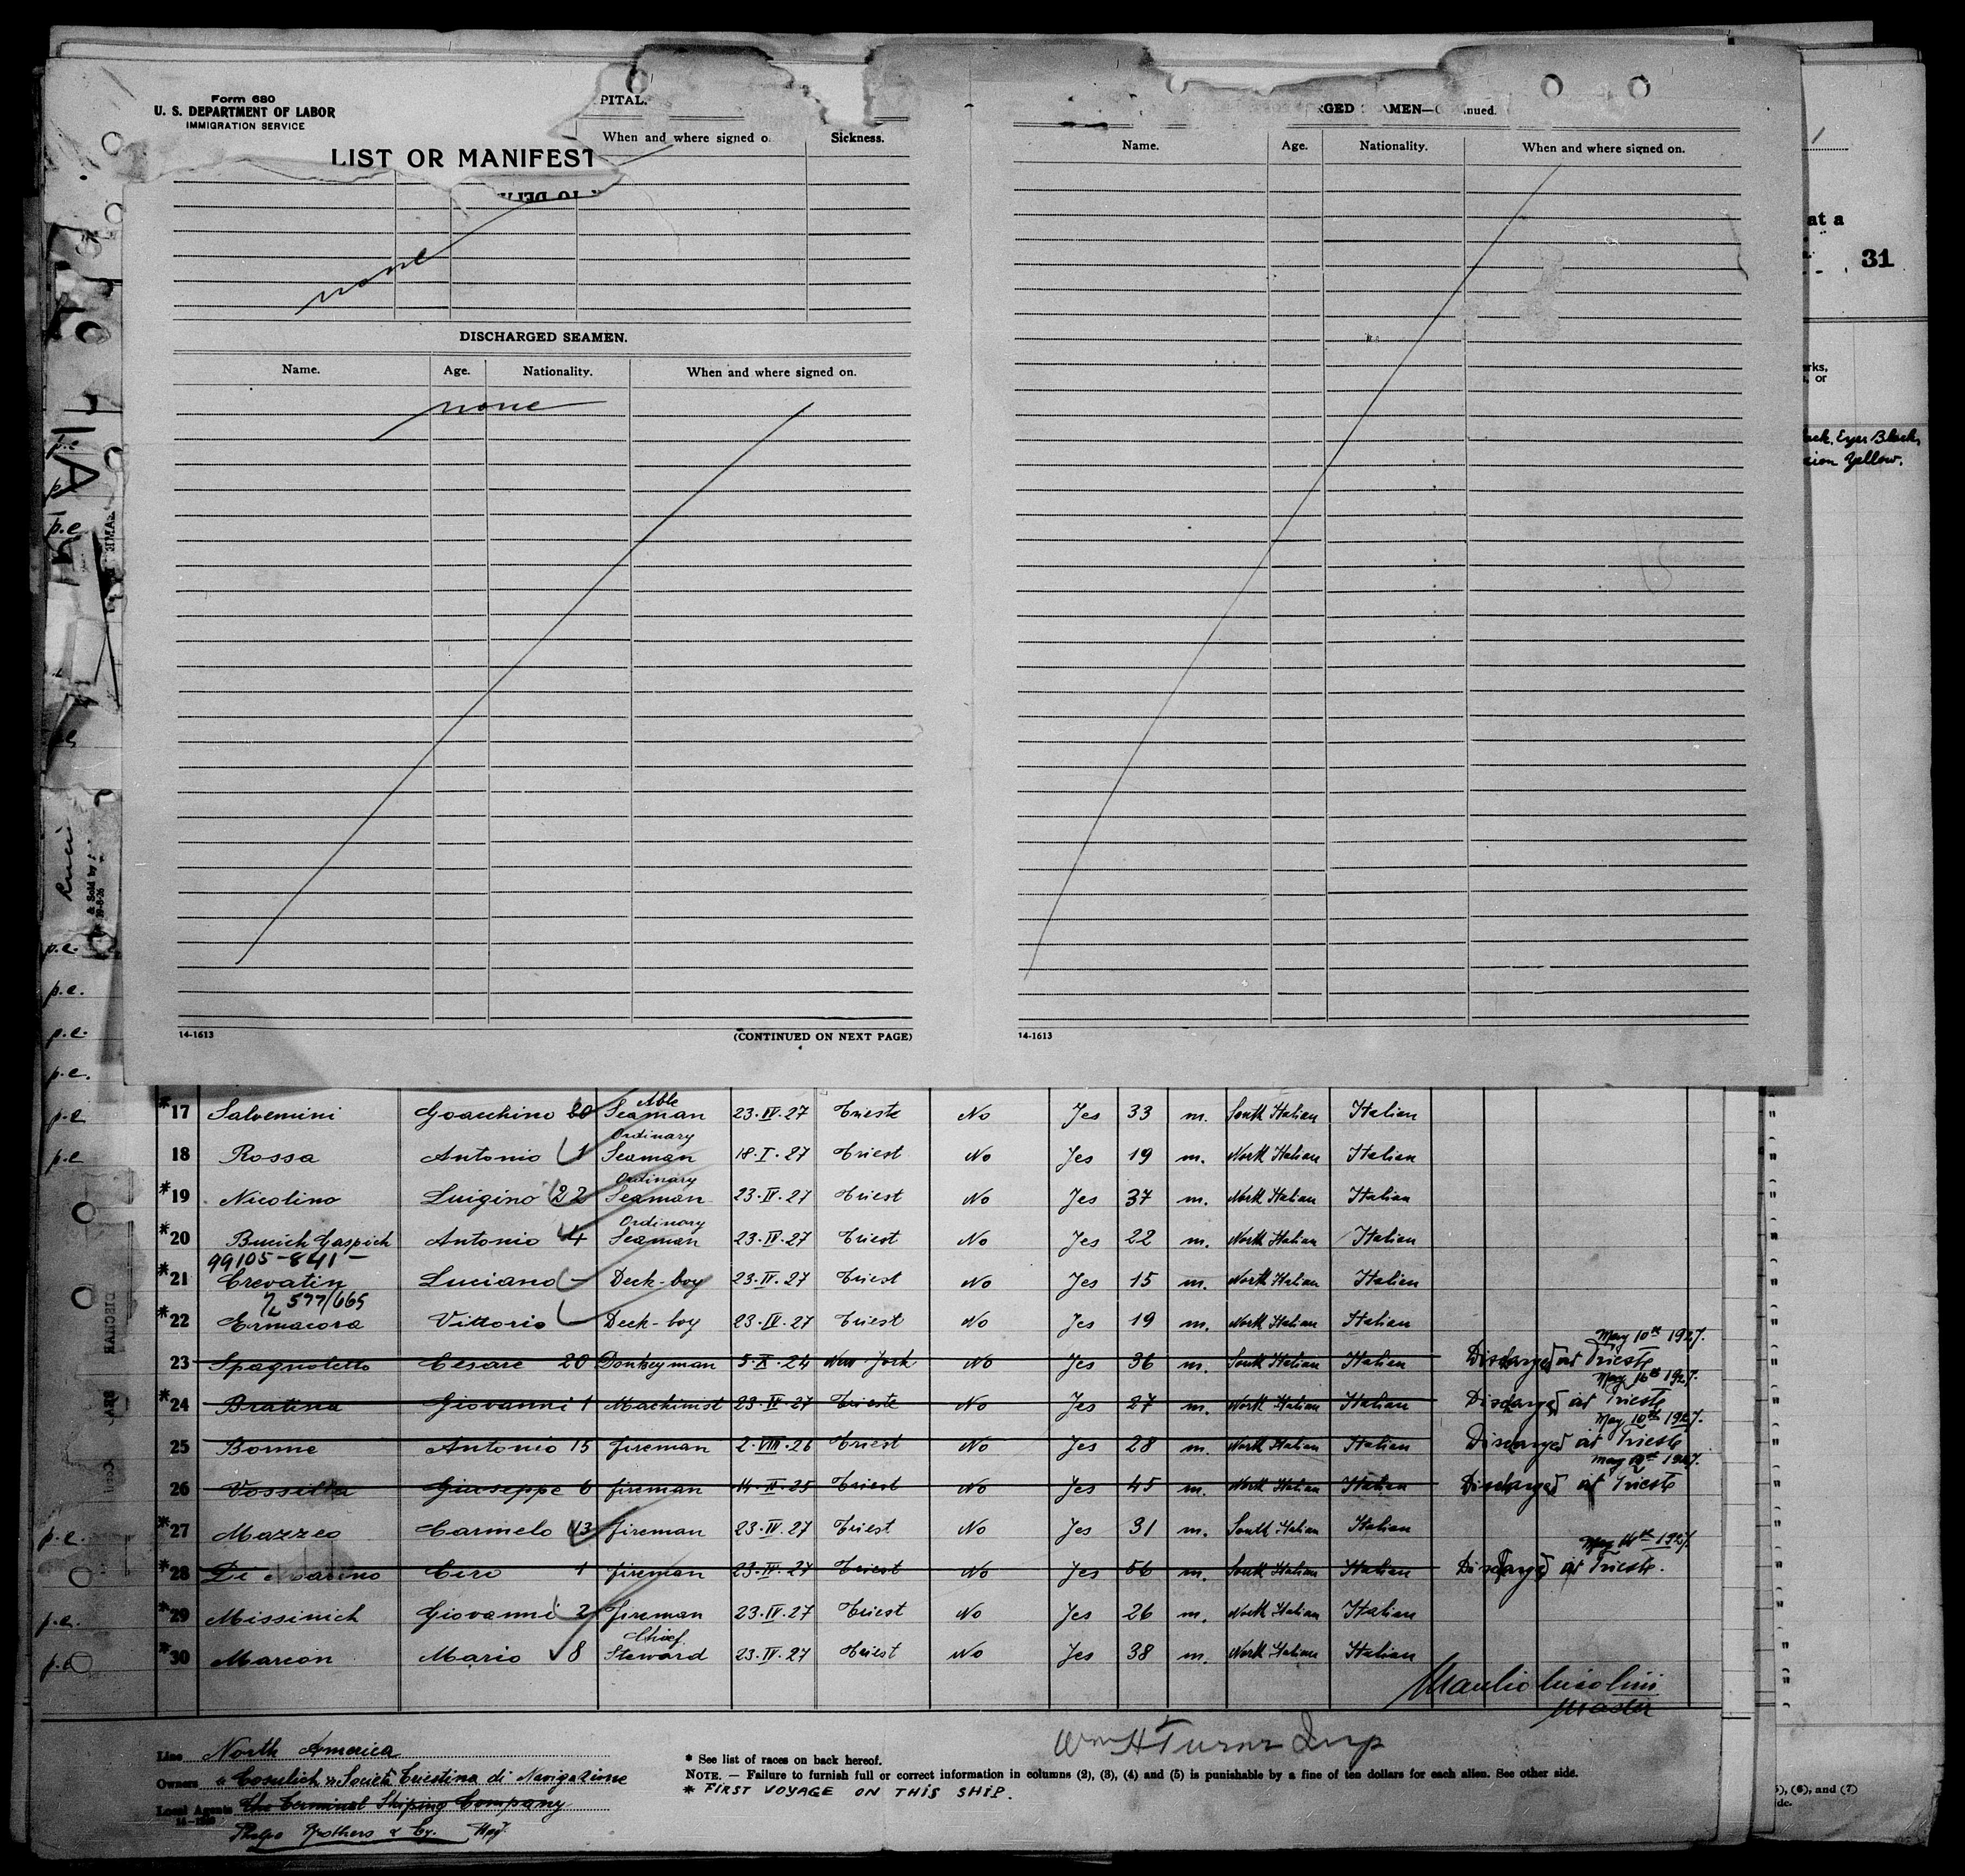 Form 680
U. S. DEPARTMENT OF LABOR
IMMIGRATION SERVICE
LIST OR MANIFEST
PITAL.
When and where signed o
Sickness.
none
DISCHARGED SEAMEN.
Name. Age. Nationality. When and where signed on.
none
14-1613 (CONTINUED ON NEXT PAGE)
RGED AMEN—C nued.
Name. Age. Nationality. When and where signed on.
14-1613
at a
31
rks,
, or
ack, Eyes Black,
xion Yellow.
*17 Salvemini Goacchino 20 Able Seaman 23.IV.27 Trieste No Yes 33 m. South Italian Italian
18 Rossa Antonio 1 Ordinary Seaman 18.I.27 Triest No Yes 19 m. North Italian Italian
*19 Nicolino Luigino 22 Ordinary Seaman 23.IV.27 Triest No Yes 37 m. North Italian Italian
*20 Bucich Gaspich Antonio 4 Ordinary Seaman 23.IV.27 Triest No Yes 22 m. North Italian Italian
99105-841-
*21 Crevatin Luciano - Deck-boy 23.IV.27 Triest No Yes 15 m. North Italian Italian
577/665
*22 Ermacora Vittorio Deck-boy 23.IV.27 Triest No Yes 19 m. North Italian Italian
23 Spagnoletto Cesare 20 Donkeyman 5.X.24 New York No Yes 36 m. South Italian Italian Discharged at Trieste May 10th 1927.
*24 Bratina Giovanni 1 Machinist 23.IV.27 Trieste No Yes 27 m. North Italian Italian Discharged at Trieste May 16th 1927.
25 Bonne Antonio 15 fireman 2.VIII.26 Triest No Yes 28 m. North Italian Italian Discharged at Trieste May 10th 1927.
26 Vossilla Giuseppe 6 fireman Triest No Yes 45 m. North Italian Italian Discharged at Trieste May 1927.
*27 Mazzeo Carmelo 13 fireman 23.IV.27 Triest No Yes 31 m. South Italian Italian
*28 Di Marino Ciro 1 fireman 23.IV.27 Triest No Yes 56 m. South Italian Italian Discharged at Trieste. May 1927.
*29 Missinich Giovanni 2 fireman 23.IV.27 Triest No Yes 26 m. North Italian Italian
*30 Marion Mario 8 Chief Steward 23.IV.27 Triest No Yes 38 m. North Italian Italian
Master
Wm H Turner Insp
Line North America
Owners "Cosulich" Società Triestina di Navigazione
Local Agents The Terminal Shiping Company
Phelps Brothers & Cy.
* See list of races on back hereof.
NOTE. — Failure to furnish full or correct information in columns (2), (3), (4) and (5) is punishable by a fine of ten dollars for each alien. See other side.
* FIRST VOYAGE ON THIS SHIP.
), (6), and (7)
de.